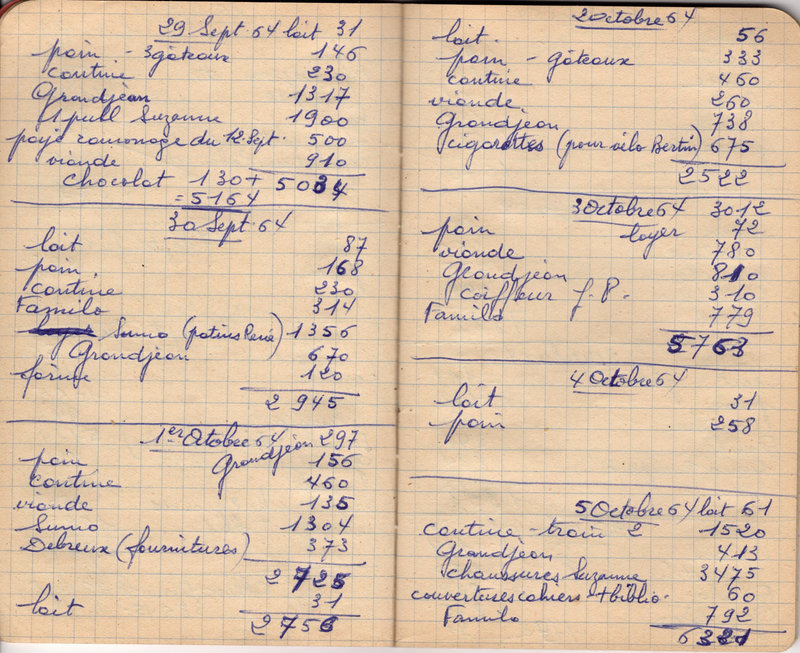 29 Sept. 64 lait 31
pain - 3 gâteaux 146
cantine 230
Grandjean 1317
1 pull Suzanne 1900
payé ramonage du 12 Sept. 500
viande 910
5034
chocolat 130 +
= 5164
30 Sept 64
lait 87
pain 168
cantine 230
Familo 314
Suma (patins René) 1356
Grandjean 670
farine 120
2 945
1er Octobre 64
Grandjean 297
pain 156
cantine 460
viande 135
Suma 1304
Debreux (fournitures) 373
2 725
lait 31
2756
2 Octobre 64
lait. 56
pain - gâteaux 333
cantine 460
viande 260
Grandjean 738
cigarettes (pour vélo Bertin) 675
2522
3 Octobre 64
loyer 3012
pain 72
viande 780
Grandjean 810
coiffeur J.P. 310
Familo 779
5763
4 Octobre 64
lait 31
pain 258
5 Octobre 64 lait 61
cantine - train 2 1520
Grandjean 413
chaussures Suzanne 3475
couvertures cahiers + biblio. 60
Familo 792
6321